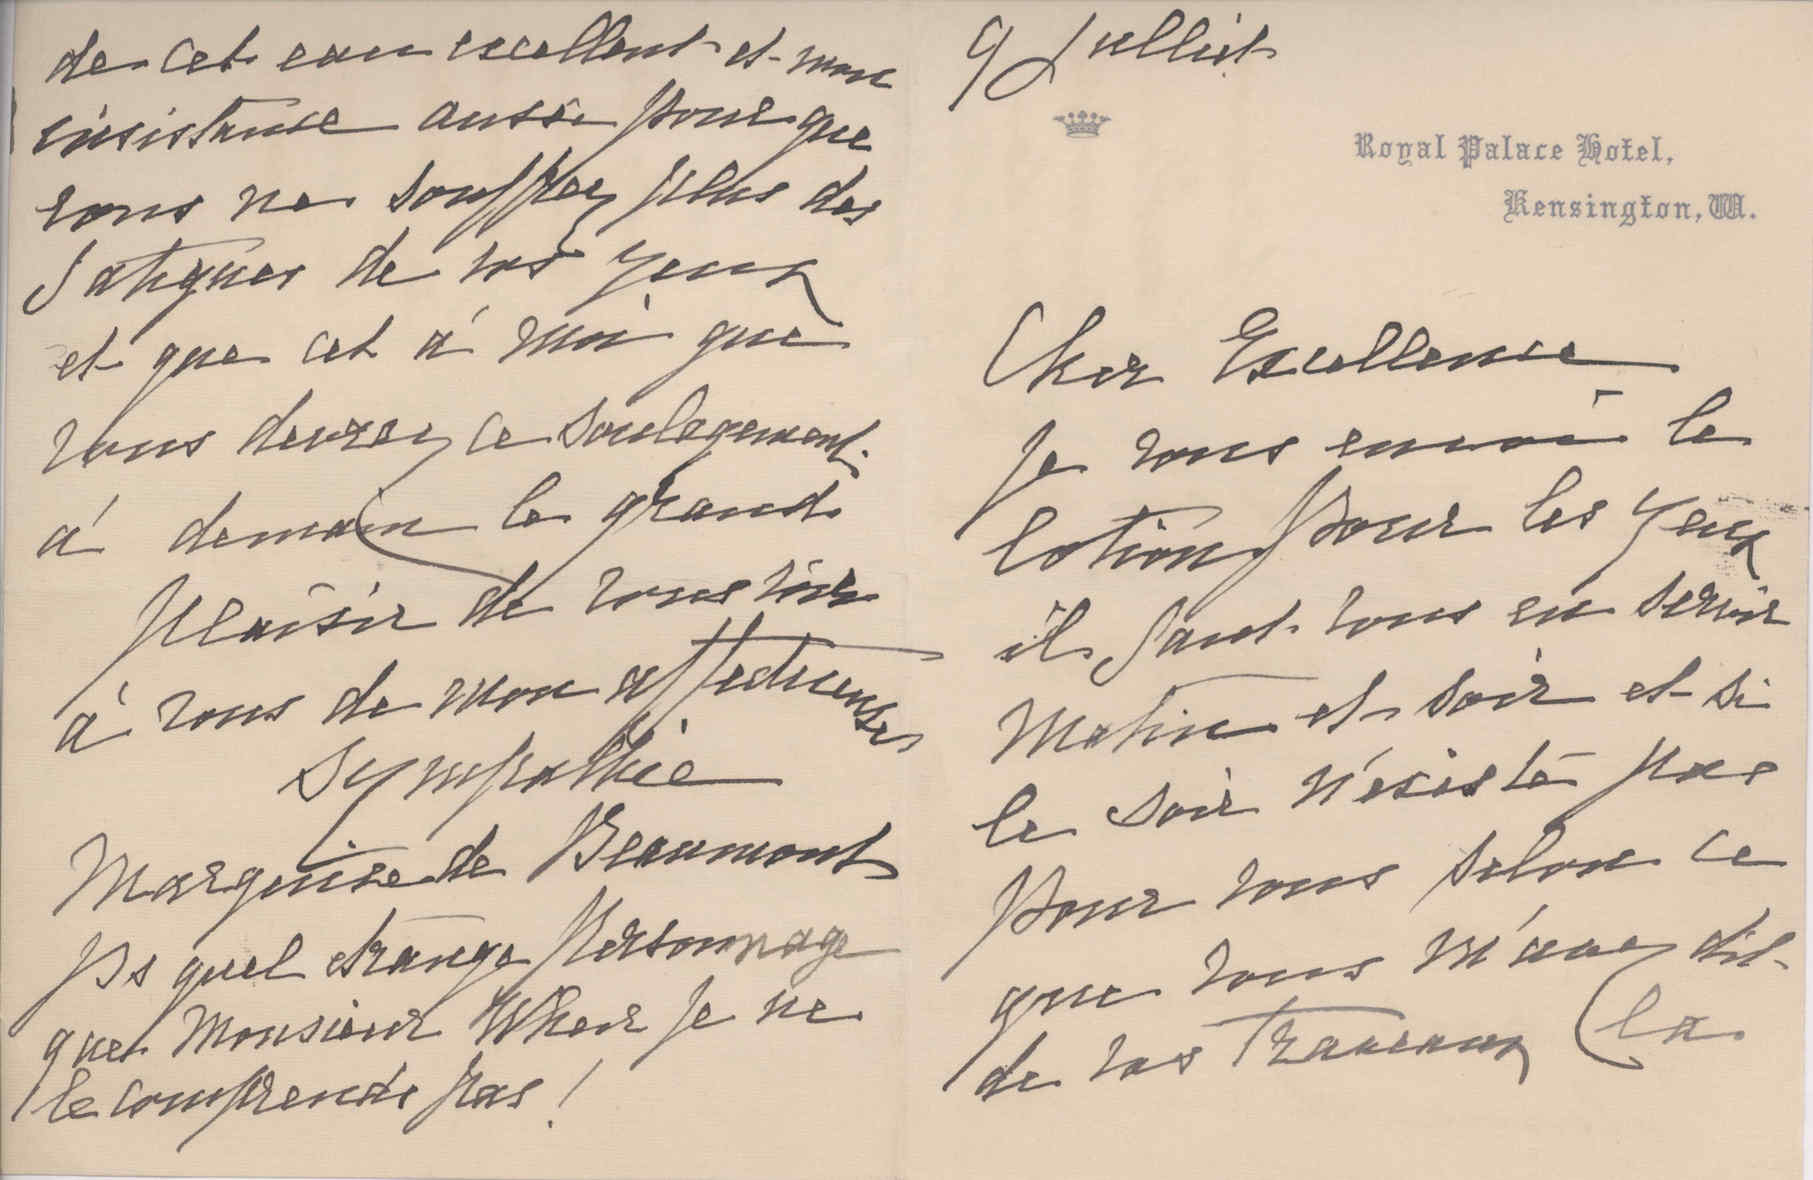 9 Julliet
Royal Palace Hotel,
Kensington, W.
Cher Excellence
Je vous envoi le
lotion pour les yeux
il faut vous en servir
matin et soir et si
le soir n'existe pas
pour vous selon ce
que vous m'avez dit
de vos travaux la
de cet eau excellent et mon
insistanse aussi pour que
vous ne souffrez plus des
fatigues de vos yeux
et que cet á moi que
vous devrez ce soulagement.
á demain le grand
plaisir de vous voir
á vous de mon affectueuse
sympathie
Marquise de Beaumont
Ps quel etrange personnage
que Monsieur Wher je ne
le comprends pas !